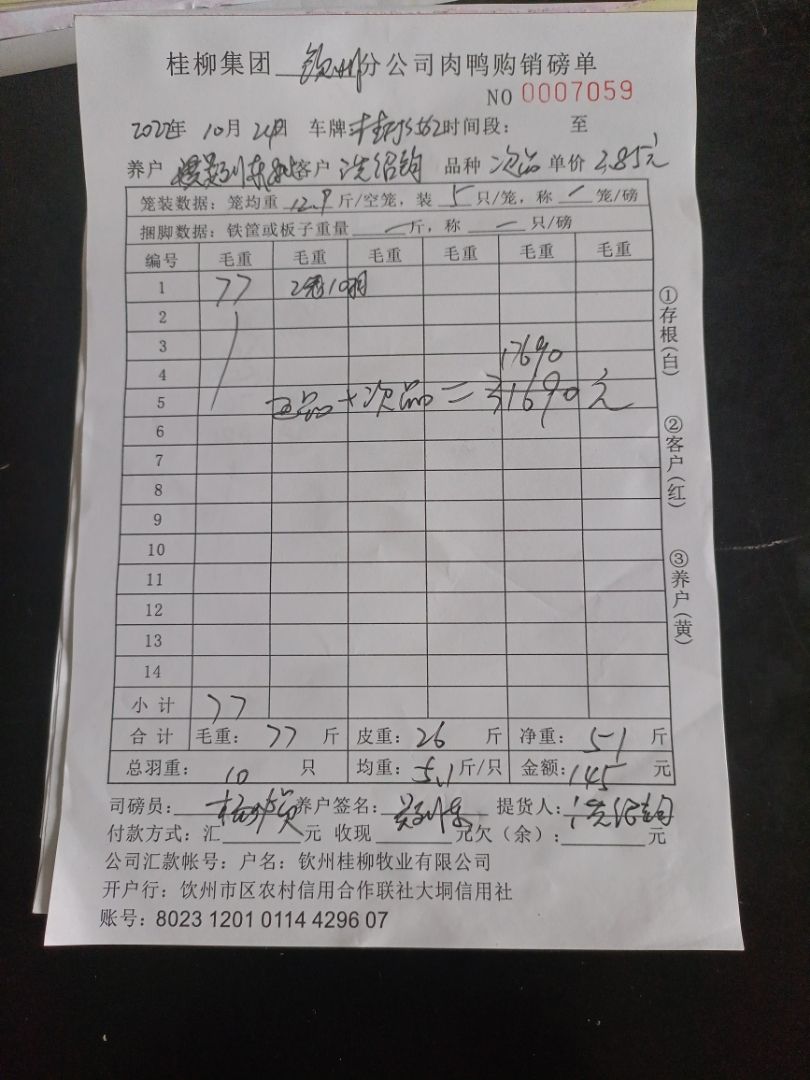 桂柳集团 钦州 分公司肉鸭购销磅单
NO 0007059
2022年 10月 24日 车牌 时间段: 至
养户 客户 冼绍钧 品种 次品 单价 2.85元
笼装数据: 笼均重 12.9 斤/空笼, 装 5 只/笼, 称 一 笼/磅
捆脚数据: 铁筐或板子重量 一 斤, 称 一 只/磅
编号 毛重 毛重 毛重 毛重 毛重 毛重
1 77 2笼10羽
2
3
17690
4
5 正品+次品=31690元
6
7
8
9
10
11
12
13
14
小计 77
合计 毛重: 77 斤 皮重: 26 斤 净重: 51 斤
总羽重: 10 只 均重: 5.1 斤/只 金额: 145 元
司磅员: 养户签名: 提货人: 冼绍钧
付款方式: 汇 元 收现 元欠(余): 元
公司汇款帐号: 户名: 钦州桂柳牧业有限公司
开户行: 钦州市区农村信用合作联社大垌信用社
账号: 8023 1201 0114 4296 07
①存根(白)
②客户(红)
③养户(黄)